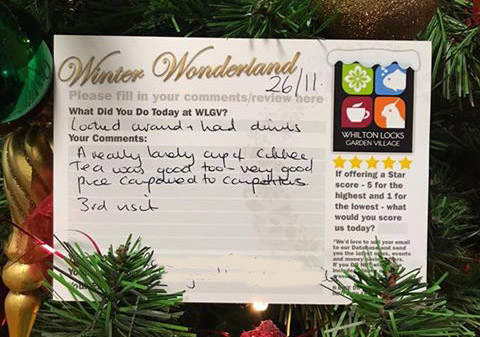 Winter Wonderland
26/11
Please fill in your comments/review here
What Did You Do Today at WLGV?
Looked around + had drinks
Your Comments:
A really lovely cup of Coffee
Tea was good too - very good
price compared to competitors.
3rd visit
WHILTON LOCKS
GARDEN VILLAGE
If offering a Star
score - 5 for the
highest and 1 for
the lowest - what
would you score
us today?
*We'd love to add your email
to our Database and send
you the latest news, events